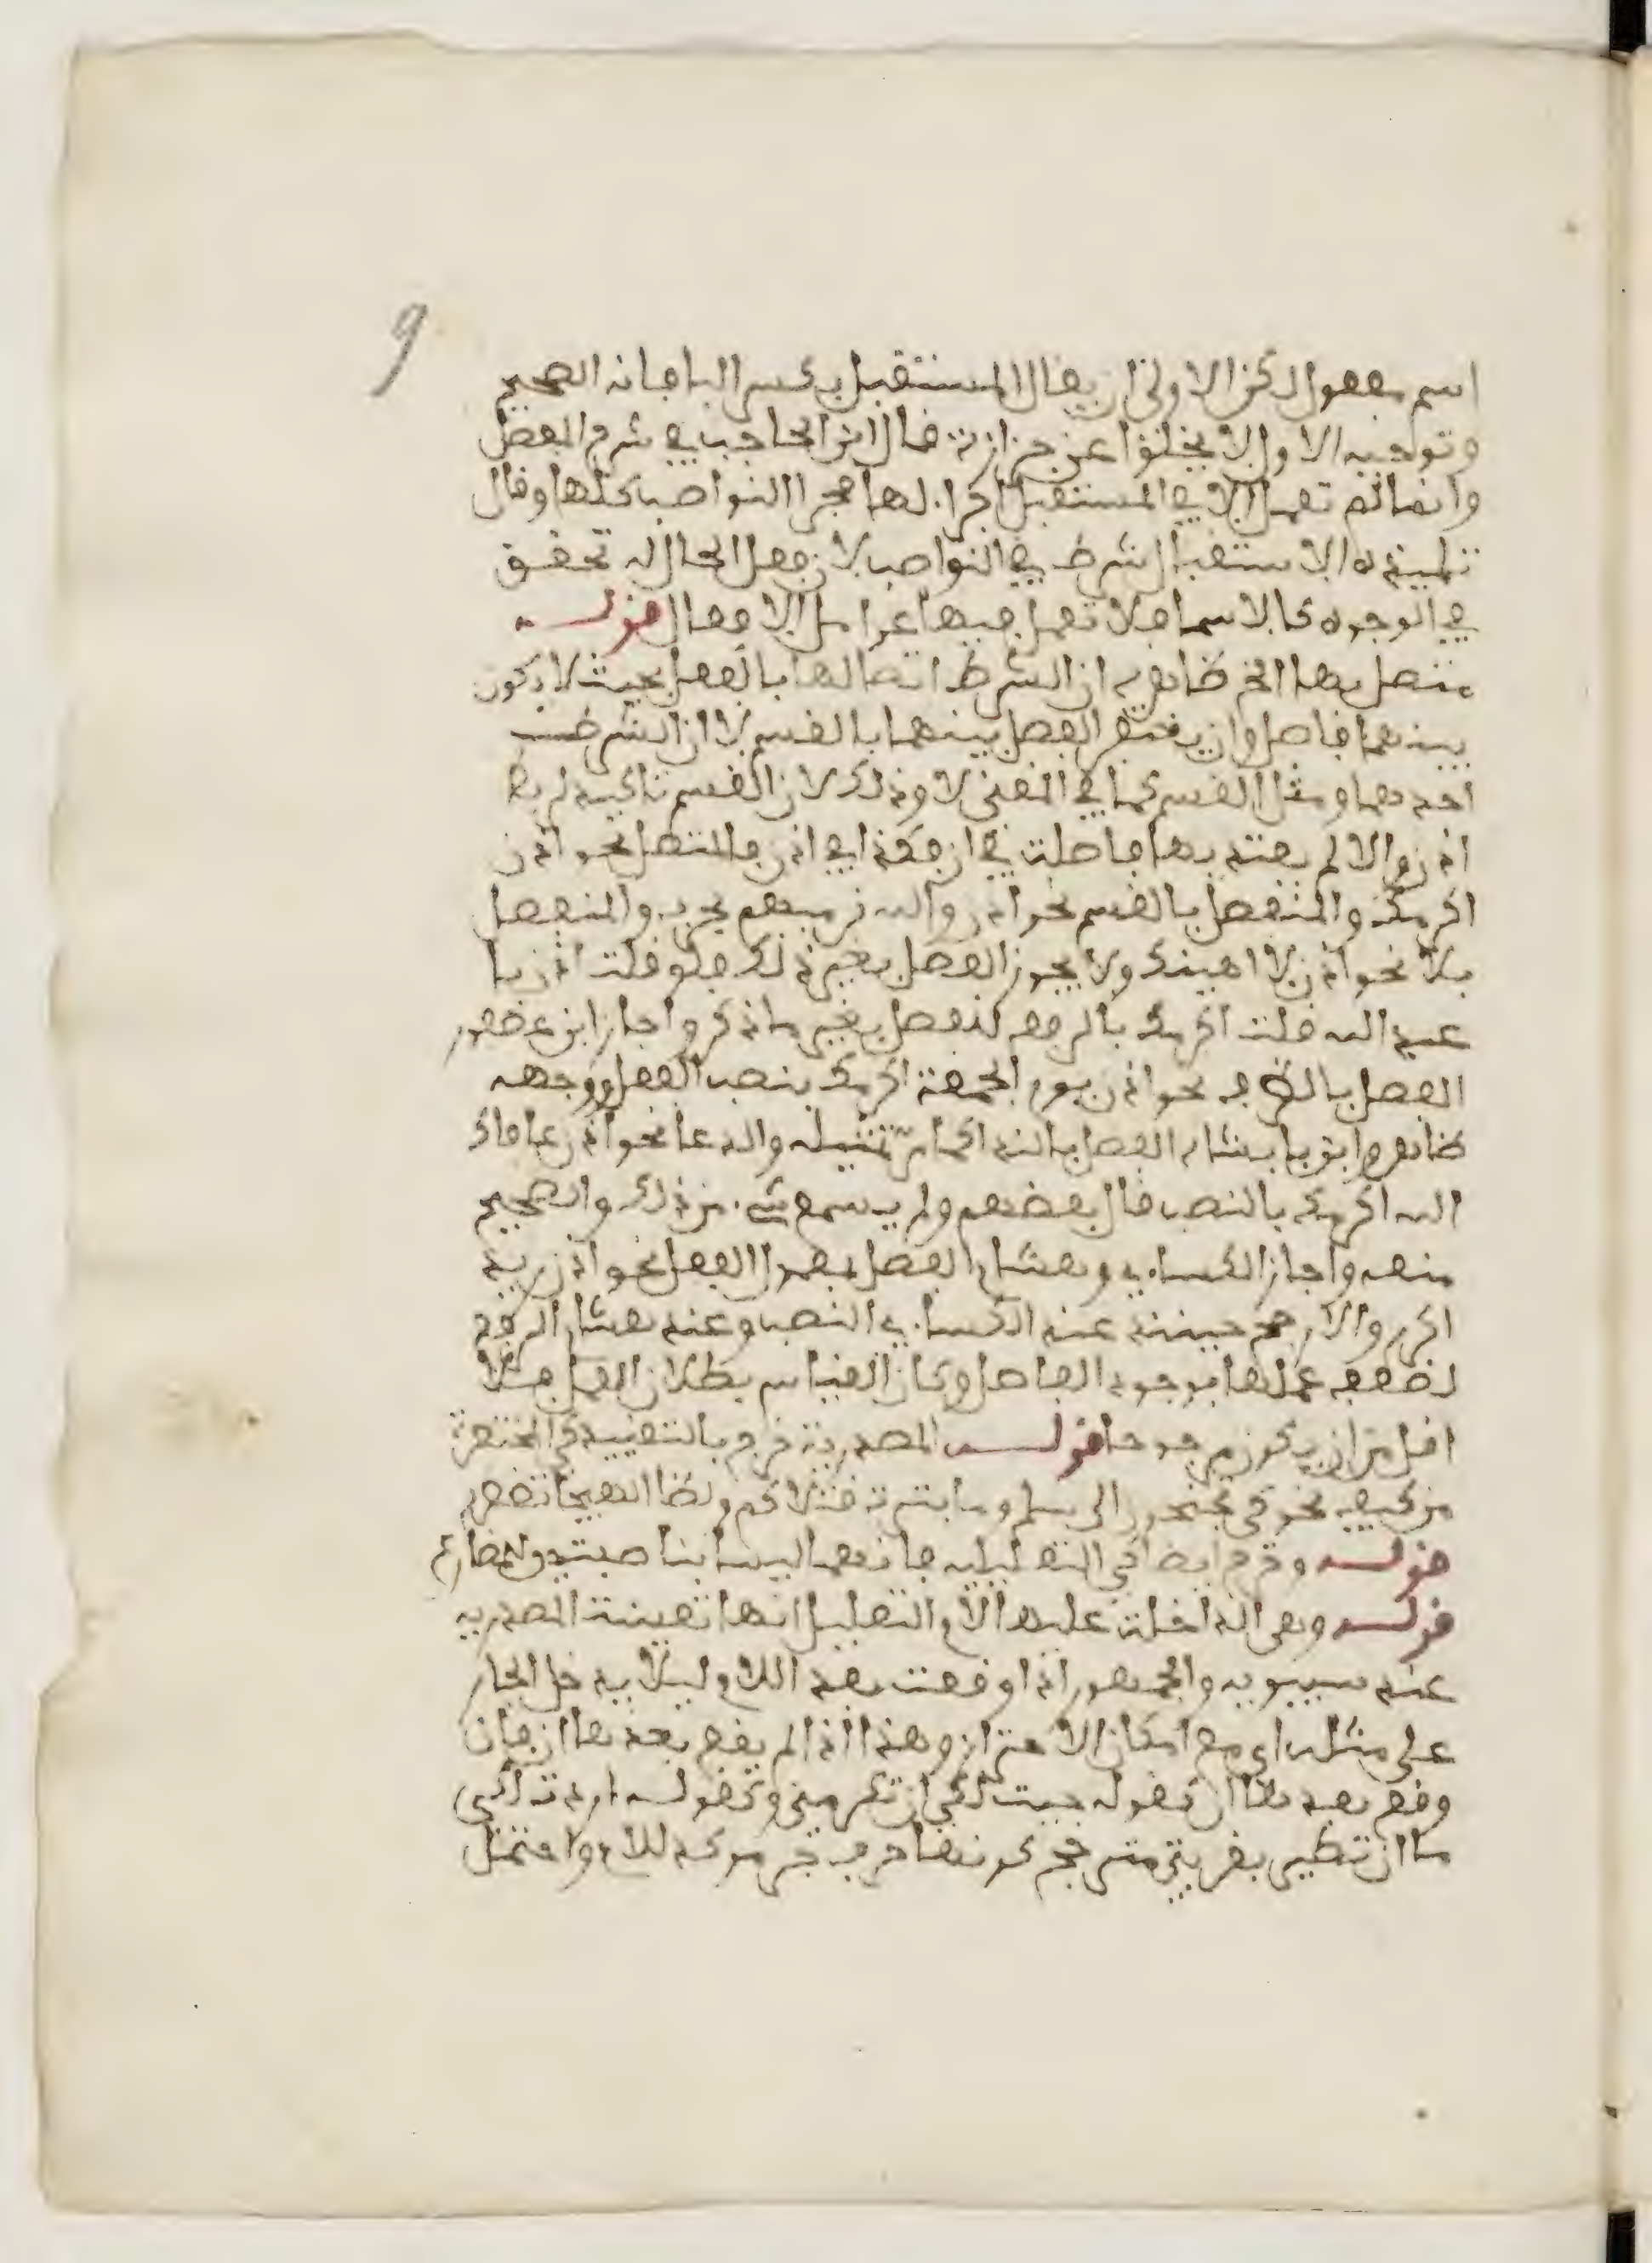 9
اسم مفعول لكن الاولى ان يقال المستقبل بكسر البا فانه الصحيح
وتوجيه الاول لا يخلوا عن حزازة قال ابن الحاجب في شرح المفصل
وانما لم تعمل الا في المستقبل اجرا لها مجرا النواصب كلها وقال
تلميذه الاستقبال شرط في النواصب لان فعل الحال له تحقق
في الوجود كالاسما فلا تعمل فيها عوامل الافعال قوله
متصل بها الخ ظاهره ان الشرط اتصالها بالفعل بحيث لا يكون
بينهما فاصل وان يغتفر الفصل بينهما بالقسم لا ان الشرط
احدهما ومثل القسم كما في المغني لا وذلك لان القسم تاكيد لربط
اذن ولا لم يعتد بها فاصلة في ان فكذا في اذن فالمتصل نحو اذن
اكرمك والمنفصل بالقسم نحو اذن والله نرميهم بحرب والمنفصل
بلا نحو اذن لا اهينك ولا يجوز الفصل بغير ذلك فلو قلت اذن يا
عبد الله قلت اكرمك بالرفع للفصل بغير ما ذكر واجاز ابن عصفور
الفصل بالظرف نحو اذن يوم الجمعة اكرمك بنصب الفعل ووجهه
ظاهر وابن بابشاذ الفصل بالندا كما مر تمثيله والدعا نحو اذن عافاك
الله اكرمك بالنصب قال بعضهم ولم يسمع شيء من ذلك والصحيح
منعه واجاز الكساءي وهشام الفصل بمعمول الفعل نحو اذن زيد
اكرم والارجح حينئذ عند الكساءي النصب وعند هشام الرفع
لضعف عملها بوجود الفاصل وكان القياس بطلان العمل فلا
اقل من ان يكون مرجوحا قوله المصدرية خرج بالتقييد كي المختصرة
من كيف نحو كي تجنحون الى سلم وما بثرت قتلاكم ولظا الهيجا تضطرم
قوله وخرج ايضا كي التعليلية فانهما ليسا بناصبتين للمضارع
قوله وهي الداخلة عليها لام التعليل انها تعينت المصدرية
عند سيبويه والجمهور اذا وقعت بعد اللام ليلا يدخل الجار
على مثله اي مع امكان الاحتراز وهذا اذا لم يقع بعدها ان فان
وقع بعدها ان كقوله جيت لكي ان تكرمني وكقوله اردت لكي
ما ان تطير بقربتي مترجح كونها حرف جر موكد للام واحتمل